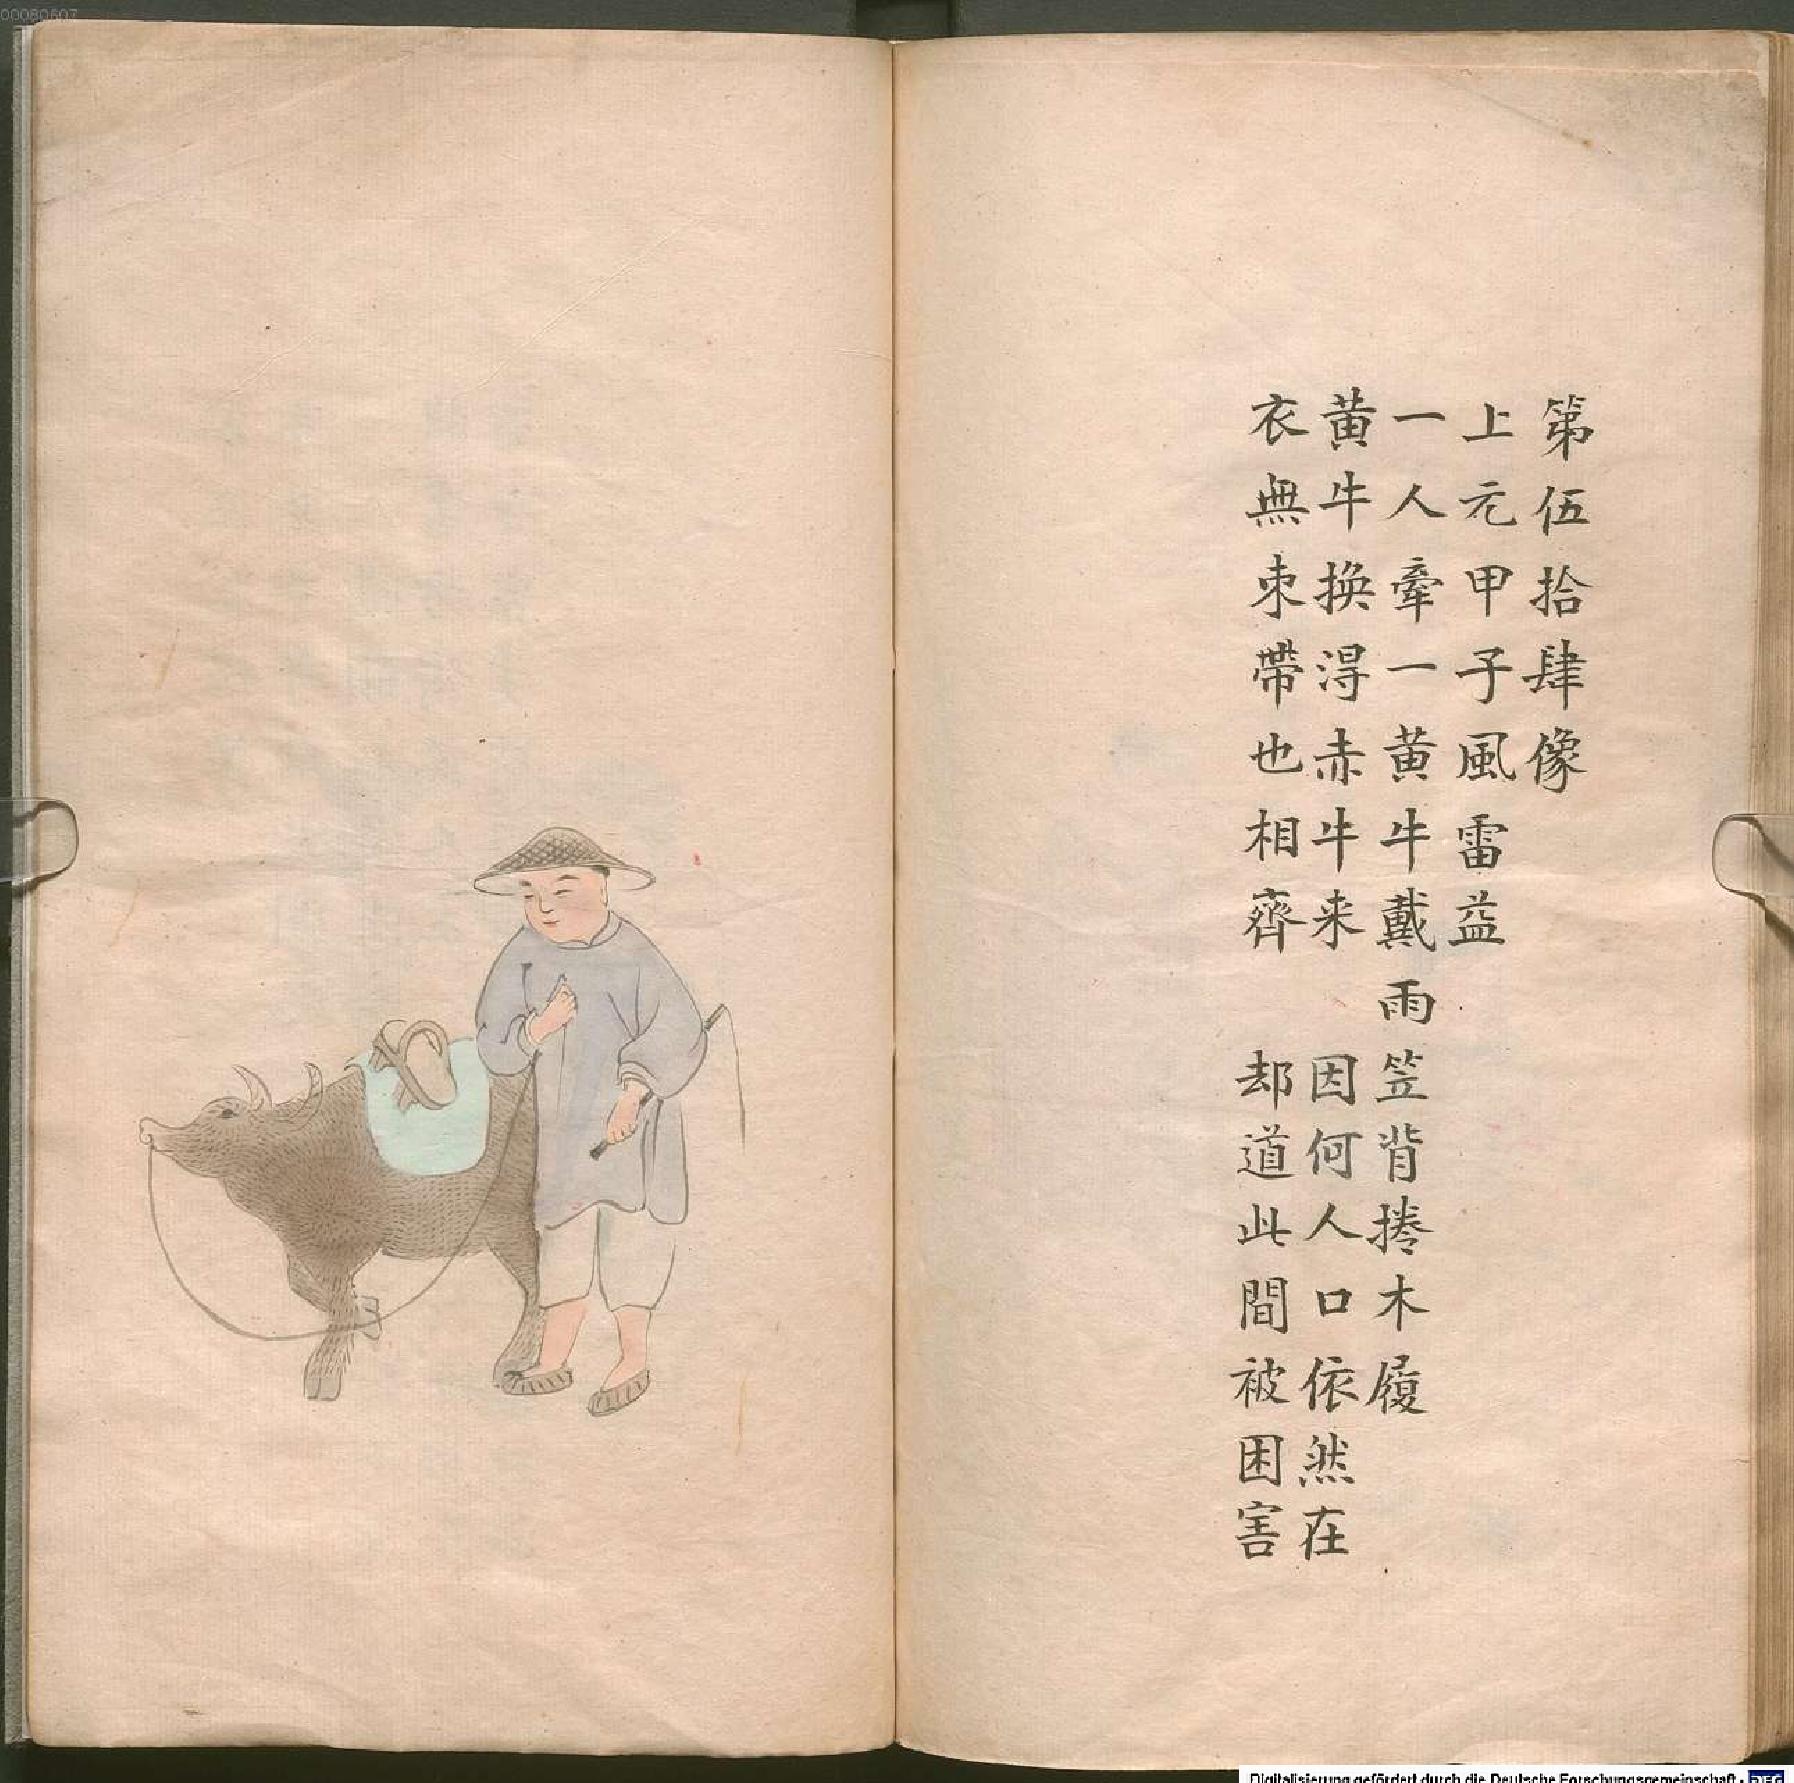 00080607
第伍拾肆像
上元甲子風雷益
一人牽一黃牛戴雨笠背捲木履
黄牛換淂赤牛来　因何人口依然在
衣無朿帶也相齊　却道此間被困害
Digitalisierung gefördert durch die Deutsche Forschungsgemeinschaft - DFG